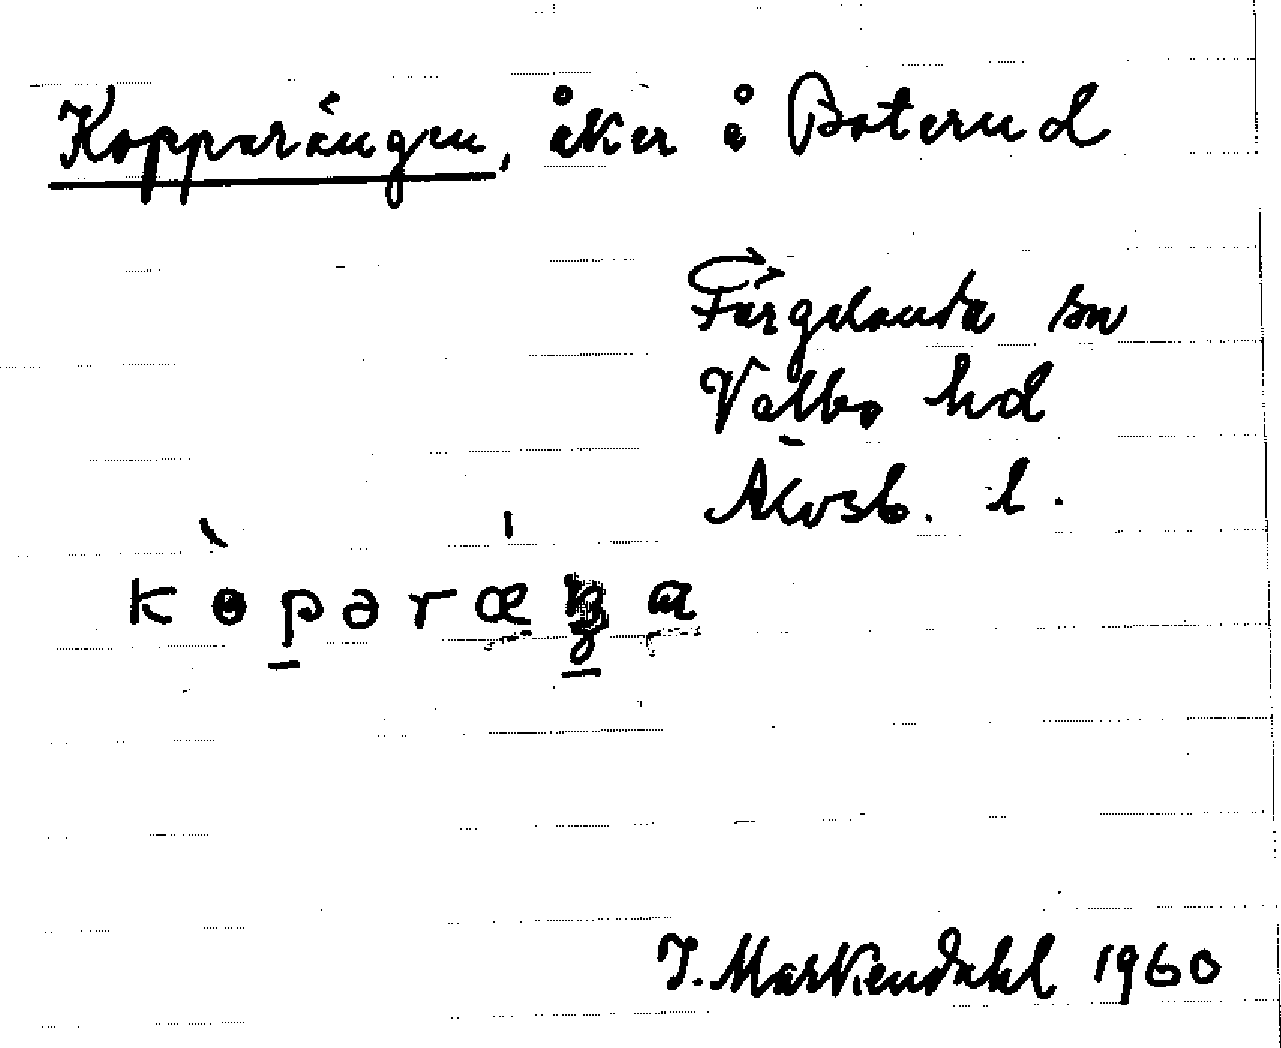 Kopparängen, åker å Boterud
Färgelanda sn
Valbo hd
Älvsb. l.
J. Markendahl 1960